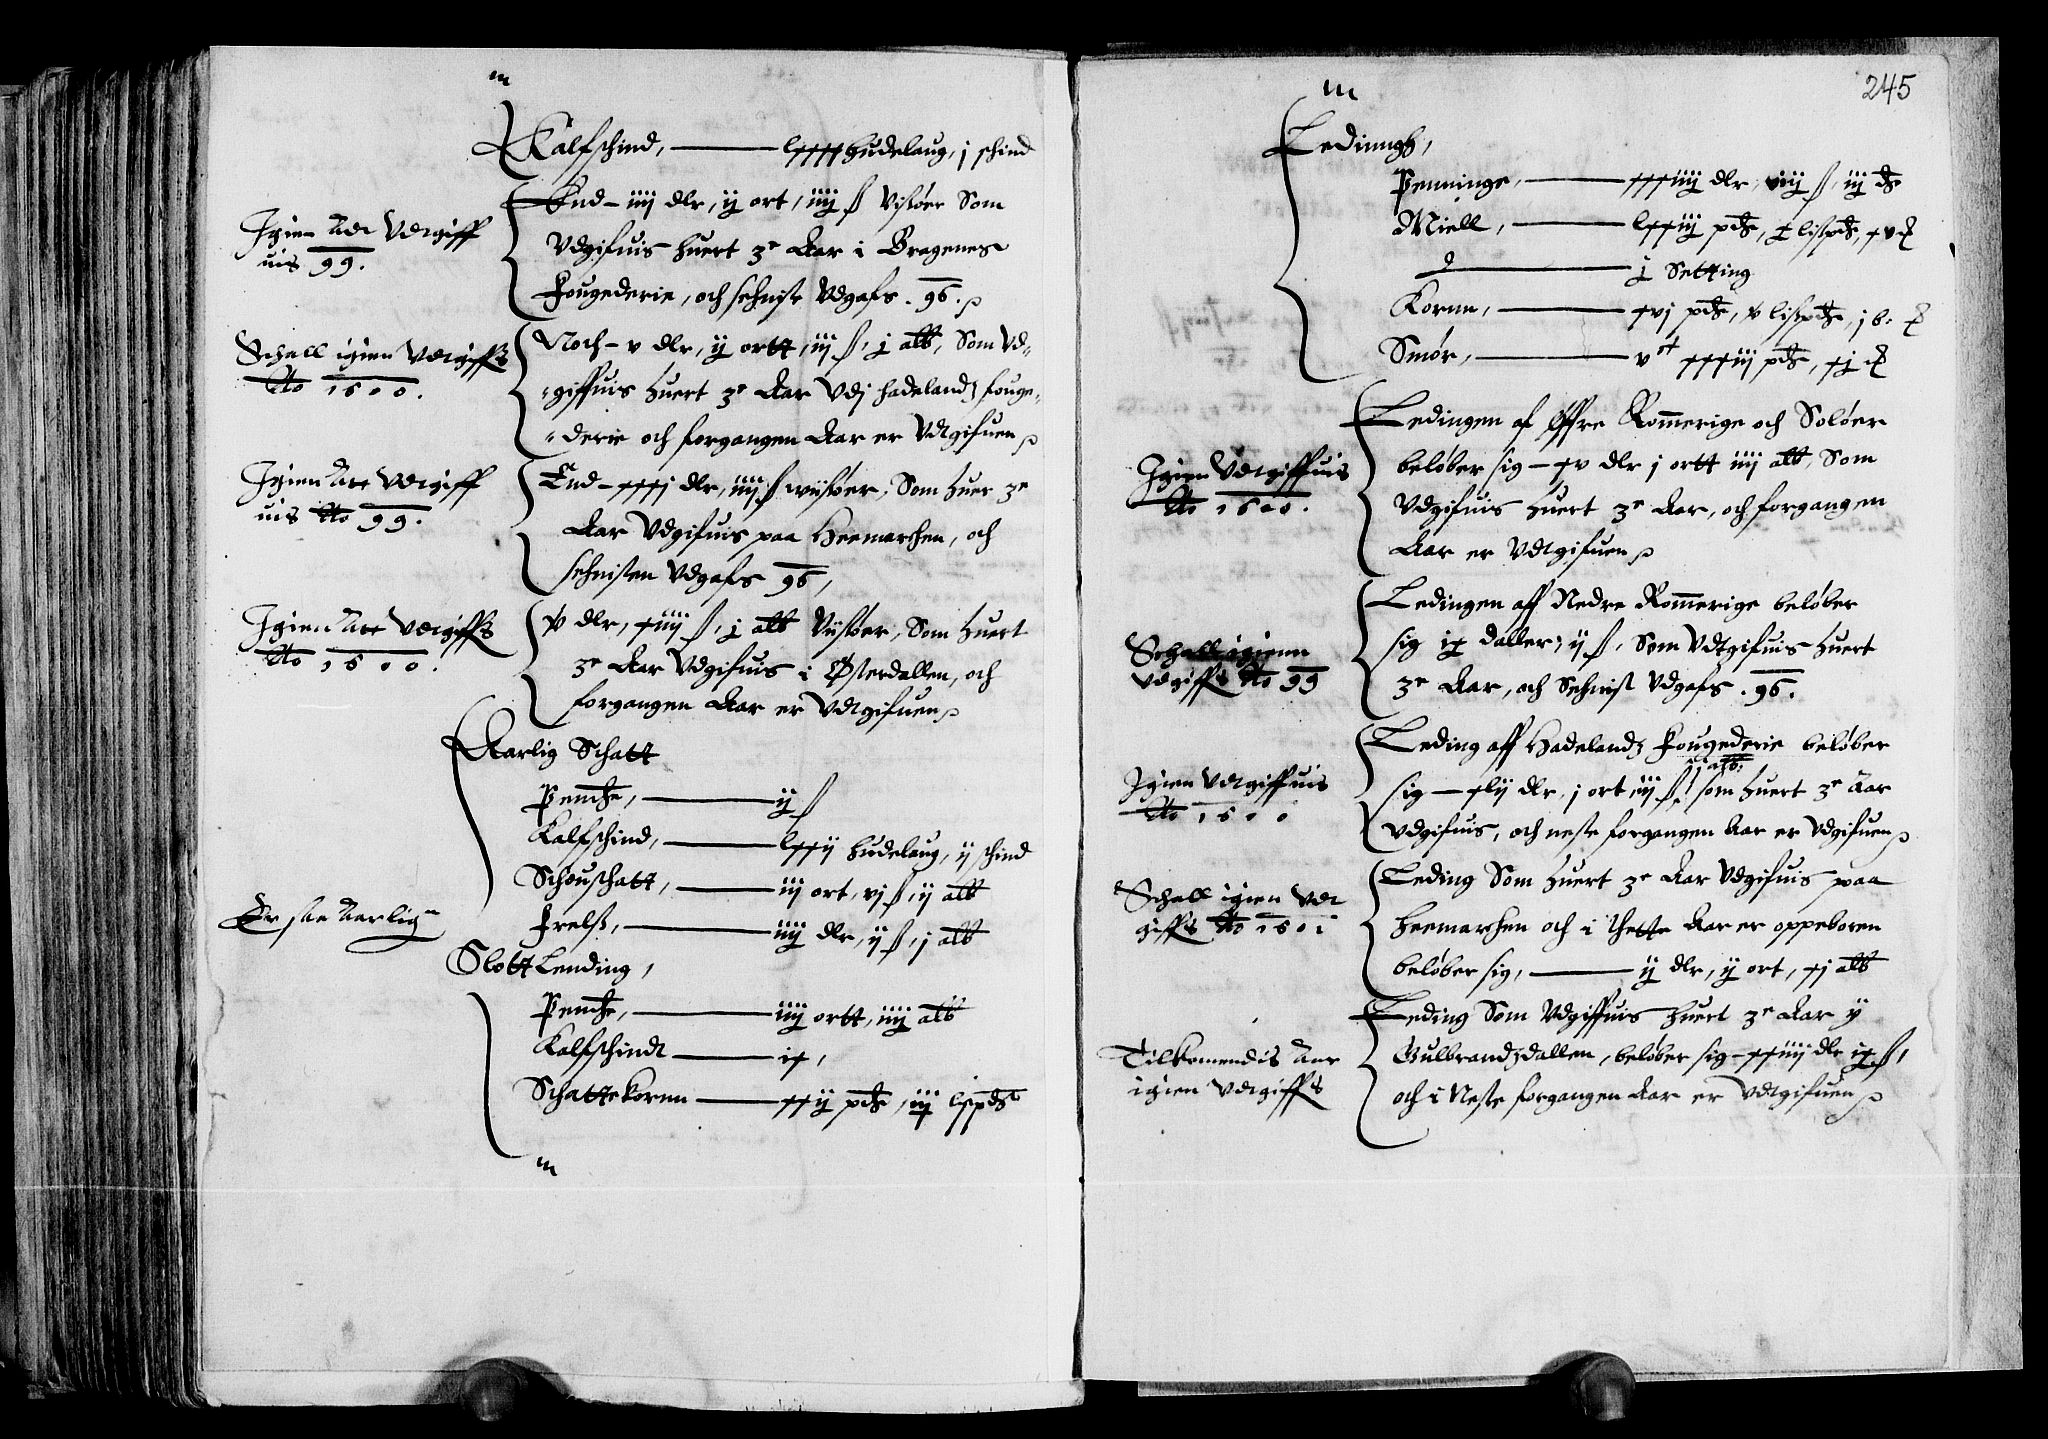 Kalfschind, — lxxxx hudelaug, j schind
Igien Att Vdtgiff
uis 99.
End – iiij dlr, ij ort, iiij ß Visøer Som
Vdgifuis huert 3e Aar i Bragenes
Fougederie, och sehnist Vdgafs. 96.
Schall igien Vdtgiffs
Ao 1600.
Noch – v dlr, ij ortt, iij ß, j alb, Som Vd-
giffuis huert 3e Aar Vdj Hadelandz fouge-
derie och forgangen Aar er Vdtgifuen
Igien Att Vdtgiff
uis Ao 99.
End – xxxj dlr, iiij ß wijsøer, Som huer 3e
Aar Vdgifuis paa Heemarchen, och
sehnisten Vdgafs 96,
Igien Att Vdtgiffs
Ao 1600.
v dlr, xiiij ß, j alb Vijsøer, Som huert
3e Aar Vdgifuis i Østerdallen, och
forgangen Aar er Vdtgifuen
Aarlig Schatt
Pendge, — ij ß
Kalfschind, — lxxij hudelaug, ij schind
Schouschatt, — iij ort, vj ß, ij alb
Er stae Aarlig
Frelß, — iiij dlr, ij ß, j alb
Slott Lending,
Pendge, — iiij ortt, iiij alb
Kalfschindt — ix,
Schattekornn — xxij pd, iij lispd
245
Ledinngh,
Penninge, — xxxiiij dlr, viij ß, iij d
Miell, — lxxiij pd, j lispd, xv
j Setting
Kornn, — xvj pd, v lispd, j b.
Smør, — v xxxiij pd, xj
Igien Vdtgiffuis
Ao 1600.
Ledingen af Øffre Rommerige och Soløer
beløber sig – xv dlr j ortt iiij alb, Som
Vdgifuis huert 3e Aar, och forgangen
Aar er Vdtgifuen
Schall igienn
Vdgiffs Ao 99
Ledingen aff Nedre Rommerige beløber
sig ix daller, ij ß, Som Vdtgifuis huert
3e Aar, och Sehnist Vdgafs. 96.
Igien Vdtgiffuis
Ao 1600
Leding aff Hadelandz Fougederie beløber
sig – xlij dlr, j ort iij ß, j alb: som huert 3e Aar
vdgifuis, och neste forgangen Aar er Vdgifuen
Schall igien Vdt
giffs Ao 1601
Leding Som huert 3e Aar Vdgifuis paa
Heemarchen och i thette Aar er oppeboren
beløber sig, — ij dlr, ij ort, xj alb
Tilkomendis Aar
igien Vdtgiffs
Leding Som Vdgiffuis huert 3e Aar ij
Gulbrandzdallen, beløber sig – xxiiij dlr ix ß,
och i Neste forgangen Aar er Vdtgifuen